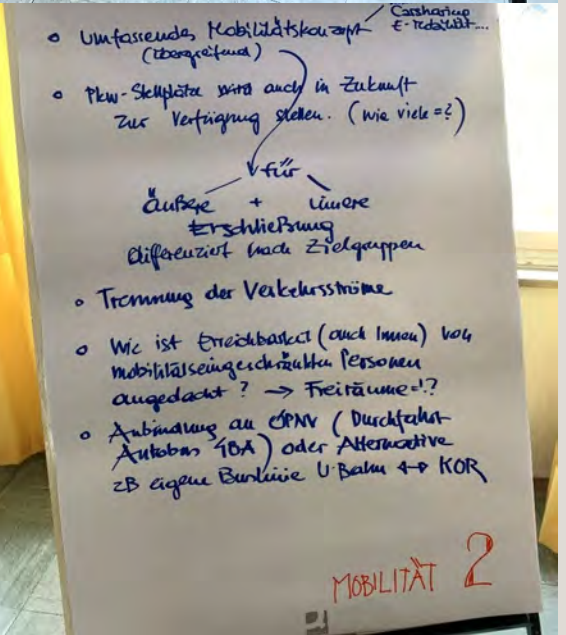 o Umfassendes Mobilitätskonzept
Carsharing
E-Mobilität...
(übergreifend)
o Pkw-Stellplätze wird auch in Zukunft
zur Verfügung stellen. (wie viele=?)
für
äußere + innere
Erschließung
differenziert nach Zielgruppen
o Trennung der Verkehrsströme
o Wie ist Erreichbarkeit (auch Innen) von
mobilitätseingeschränkten Personen
angedacht? → Freiräume=!?
o Anbindung an ÖPNV (Durchfahrt
Autobus) oder Alternative
zB eigene Buslinie U-Bahn ↔ KOR
MOBILITÄT 2